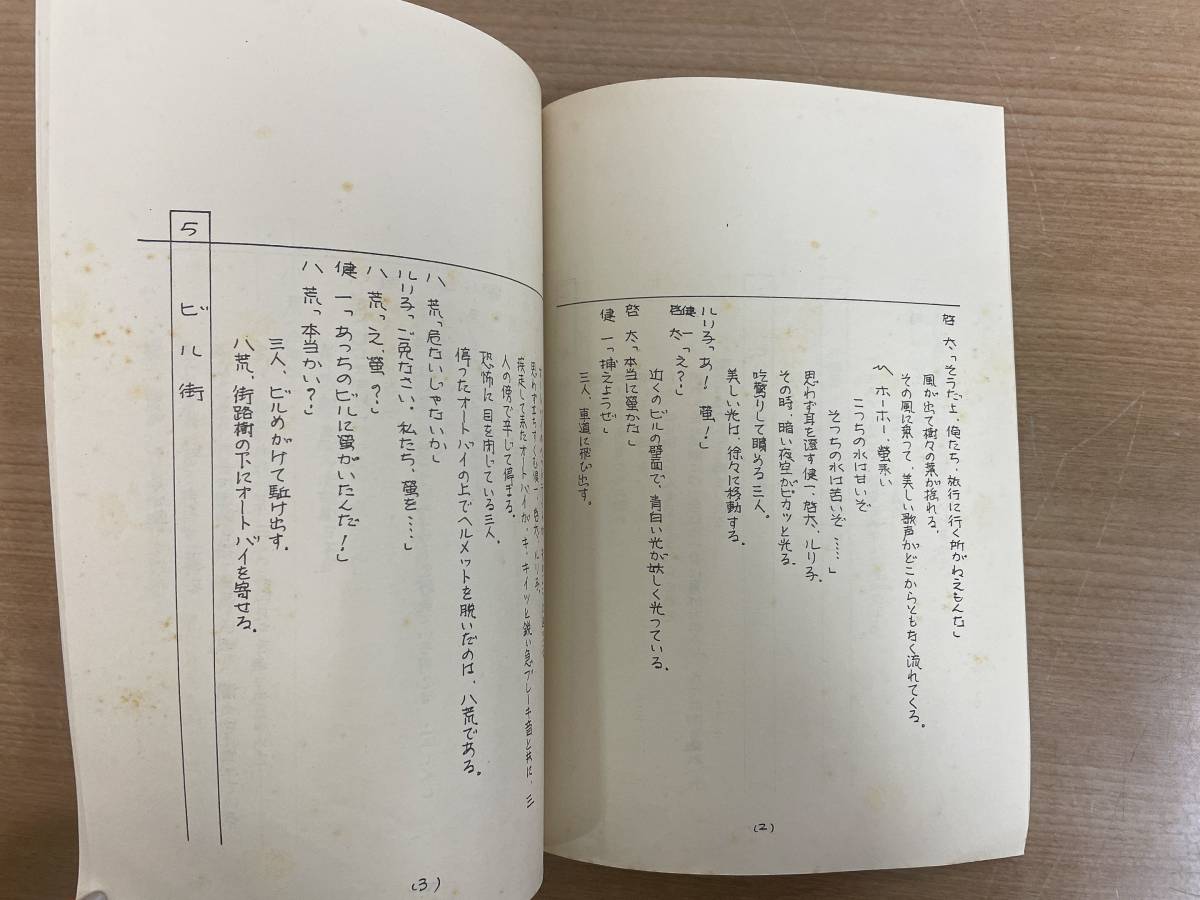 啓 太「そうだよ、俺たち、旅行に行く所がねえもんな」
風が出て樹々の葉が揺れる。
その風に乗って、美しい歌声がどこからともなく流れてくる。
〽ホーホー、螢来い
こっちの水は甘いぞ
そっちの水は苦いぞ……」
思わず耳を澄す健一、啓太、ルリ子。
その時、暗い夜空がピカッと光る。
吃驚りして瞶める三人。
美しい光は、徐々に移動する。
ルリ子「あ! 螢!」
健 一
啓 太「え?」
近くのビルの壁面で、青白い光が妖しく光っている。
啓 太「本当に螢かな」
健 一「捕えようぜ」
三人、車道に飛び出す。
(2)
思わず立ちすくむ健一、啓太、ルリ子。
疾走して来たオートバイが、キ、キイッと鋭い急ブレーキ音と共に、三
人の傍で辛じて停まる。
恐怖に目を閉じている三人。
停ったオートバイの上でヘルメットを脱いだのは、八荒である。
八 荒「危ないじゃないか」
ルリ子「ご免なさい。私たち、螢を……」
八 荒「え、螢?」
健 一「あっちのビルに螢がいたんだ!」
八 荒「本当かい?」
三人、ビルめがけて駈け出す。
八荒、街路樹の下にオートバイを寄せる。
5 ビル街
(3)